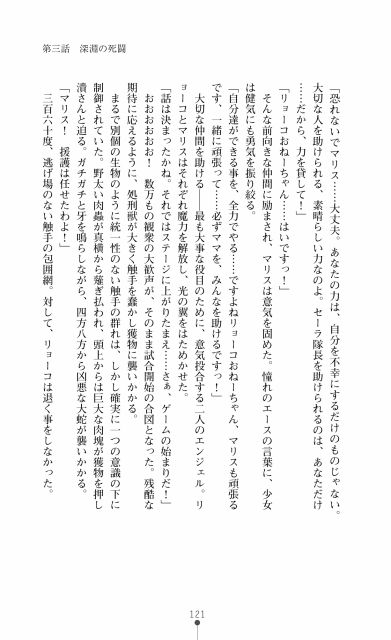 第三話　深淵の死闘
「恐れないでマリス……大丈夫。あなたの力は、自分を不幸にするだけのものじゃない。
大切な人を助けられる、素晴らしい力なのよ。セーラ隊長を助けられるのは、あなただけ
……だから、力を貸して！」
「リョーコおねーちゃん……はいですっ！」
そんな前向きな仲間に励まされ、マリスは意気を固めた。憧れのエースの言葉に、少女
は健気にも勇気を振り絞る。
「自分達ができる事を、全力でやる……ですよねリョーコおねーちゃん、マリスも頑張る
です、一緒に頑張って……必ずママを、みんなを助けるですっ！」
大切な仲間を助ける――最も大事な役目のために、意気投合する二人のエンジェル。リ
ョーコとマリスはそれぞれ魔力を解放し、光の翼をはためかせた。
「話は決まったかね。それではステージに上がりたまえ……さぁ、ゲームの始まりだ！」
おおおおおお！　数万もの観衆の大歓声が、そのまま試合開始の合図となった。残酷な
期待に応えるように、処刑獣が大きく触手を蠢かし獲物に襲いかかる。
まるで別個の生物のように統一性のない触手の群れは、しかし確実に一つの意識の下に
制御されていた。野太い肉蟲が真横から薙ぎ払われ、頭上からは巨大な肉塊が獲物を押し
潰さんと迫る。ガチガチと牙を鳴らしながら、四方八方から凶悪な大蛇が襲いかかる。
「マリス！　援護は任せたわよ！」
三百六十度、逃げ場のない触手の包囲網。対して、リョーコは退く事をしなかった。
121